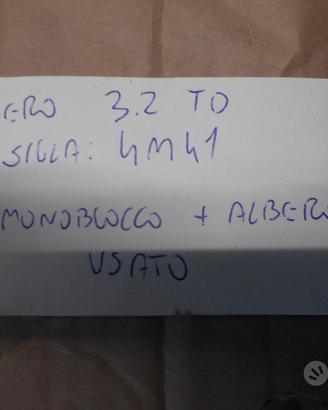 ERO 3.2 TD
SIGLA: 4M41
MONOBLOCCO + ALBERO
USATO